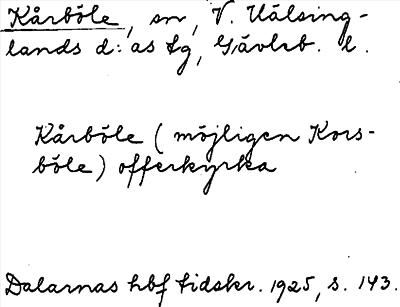 Kårböle, sn, V. Hälsing-
lands d:as tg, Gävleb. l.
Kårböle (möjligen Kors-
böle) offerkyrka
Dalarnas hbf tidskr. 1925, s. 143.